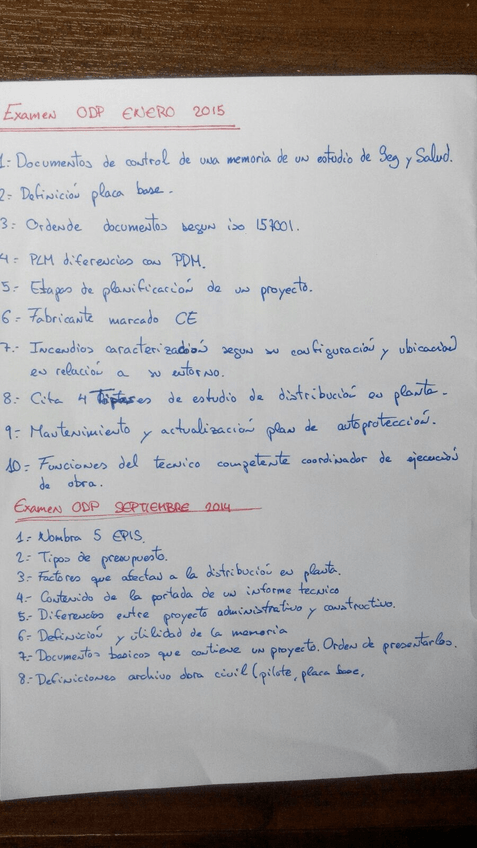 Examen ODP ENERO 2015
1.- Documentos de control de una memoria de un estudio de Seg y Salud.
2.- Definición placa base.
3.- Ordende documentos segun iso 157001.
4.- PLM diferencias con PDM.
5.- Etapas de planificación de un proyecto.
6.- Fabricante marcado CE
7.- Incendios caracterización segun su configuración y ubicación
en relación a su entorno.
8.- Cita 4 de estudio de distribución en planta.
9.- Mantenimiento y actualización plan de autoprotección.
10.- Funciones del tecnico competente coordinador de ejecución
de obra.
Examen ODP SEPTIEMBRE 2014
1.- Nombra 5 EPIS.
2.- Tipos de presupuesto.
3.- Factores que afectan a la distribución en planta.
4.- Contenido de la portada de un informe tecnico
5.- Diferencias entre proyecto administrativo y constructivo.
6.- Definición y utilidad de la memoria
7.- Documentos basicos que contiene un proyecto. Orden de presentarlos.
8.- Definiciones archivo obra civil (pilote, placa base,